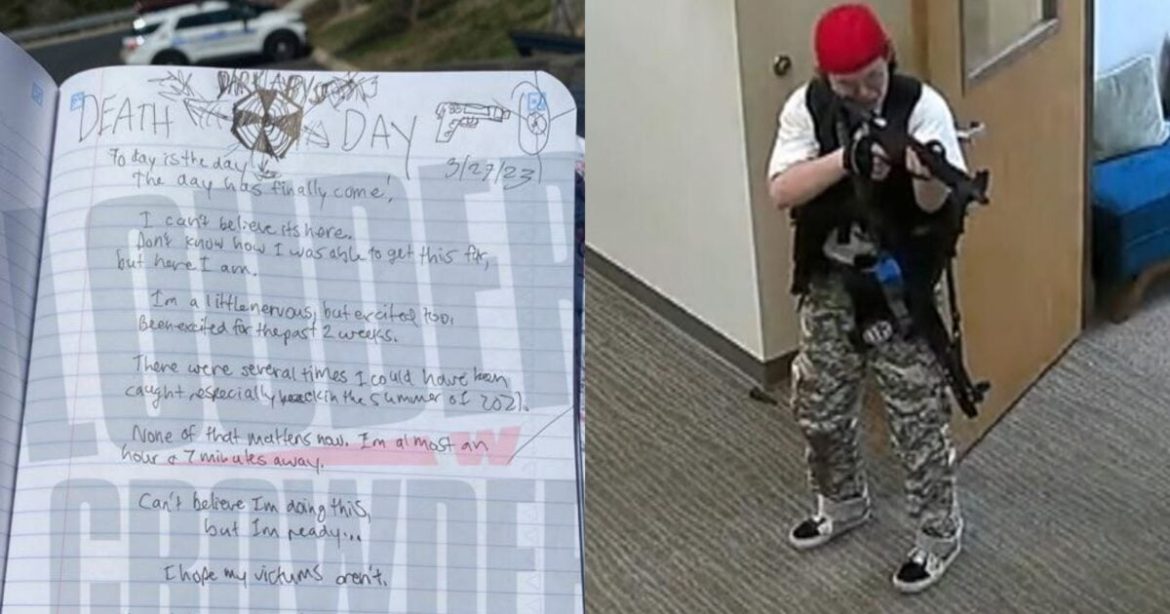 DEATH DAY
3/27/23
Today is the day
The day has finally come!
I can't believe its here.
Don't know how I was able to get this far,
but here I am.
I'm a little nervous, but excited too.
Been excited for the past 2 weeks.
There were several times I could have been
caught, especially back in the summer of 2021.
None of that matters now. I'm almost an
hour & 7 minutes away.
Can't believe I'm doing this,
but I'm ready...
I hope my victums aren't.
LOUDER
W
CROWDE